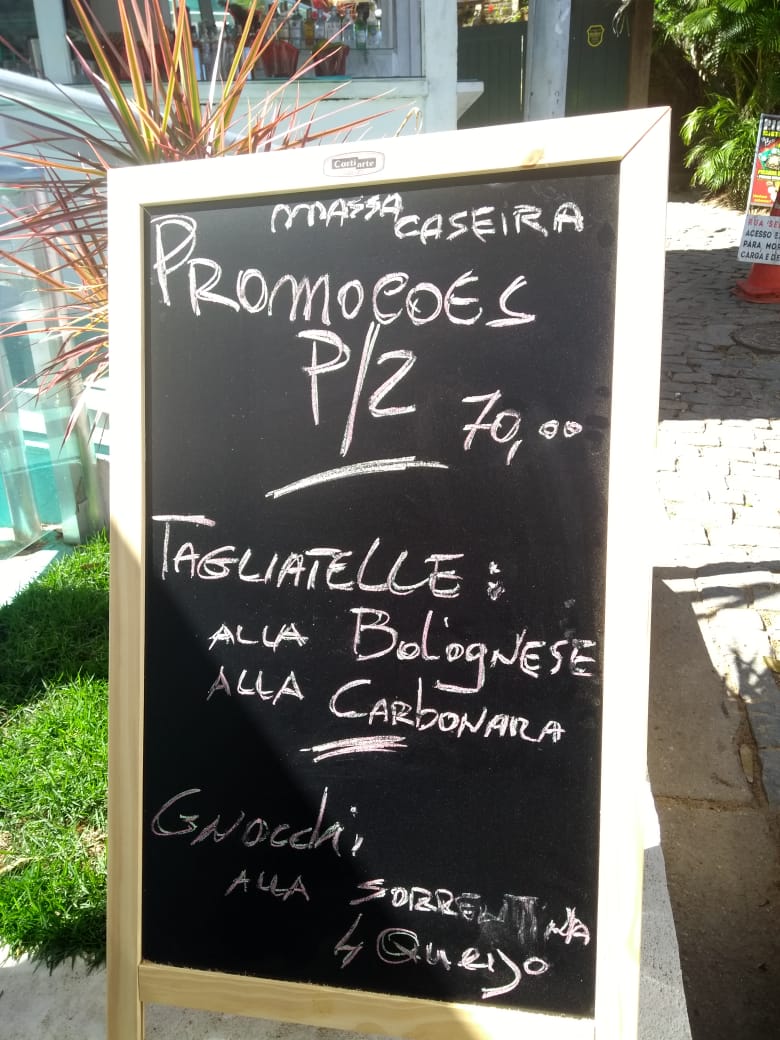 Cortiarte
MASSA CASEIRA
PROMOCOES
P/2
70,00
TAGLIATELLE:
ALLA BologNESE
ALLA CARbONARA
GNocchi
ALLA SORRENTINA
4 QueiJo
RUA
ACESSO
PARA
CARGA E DE